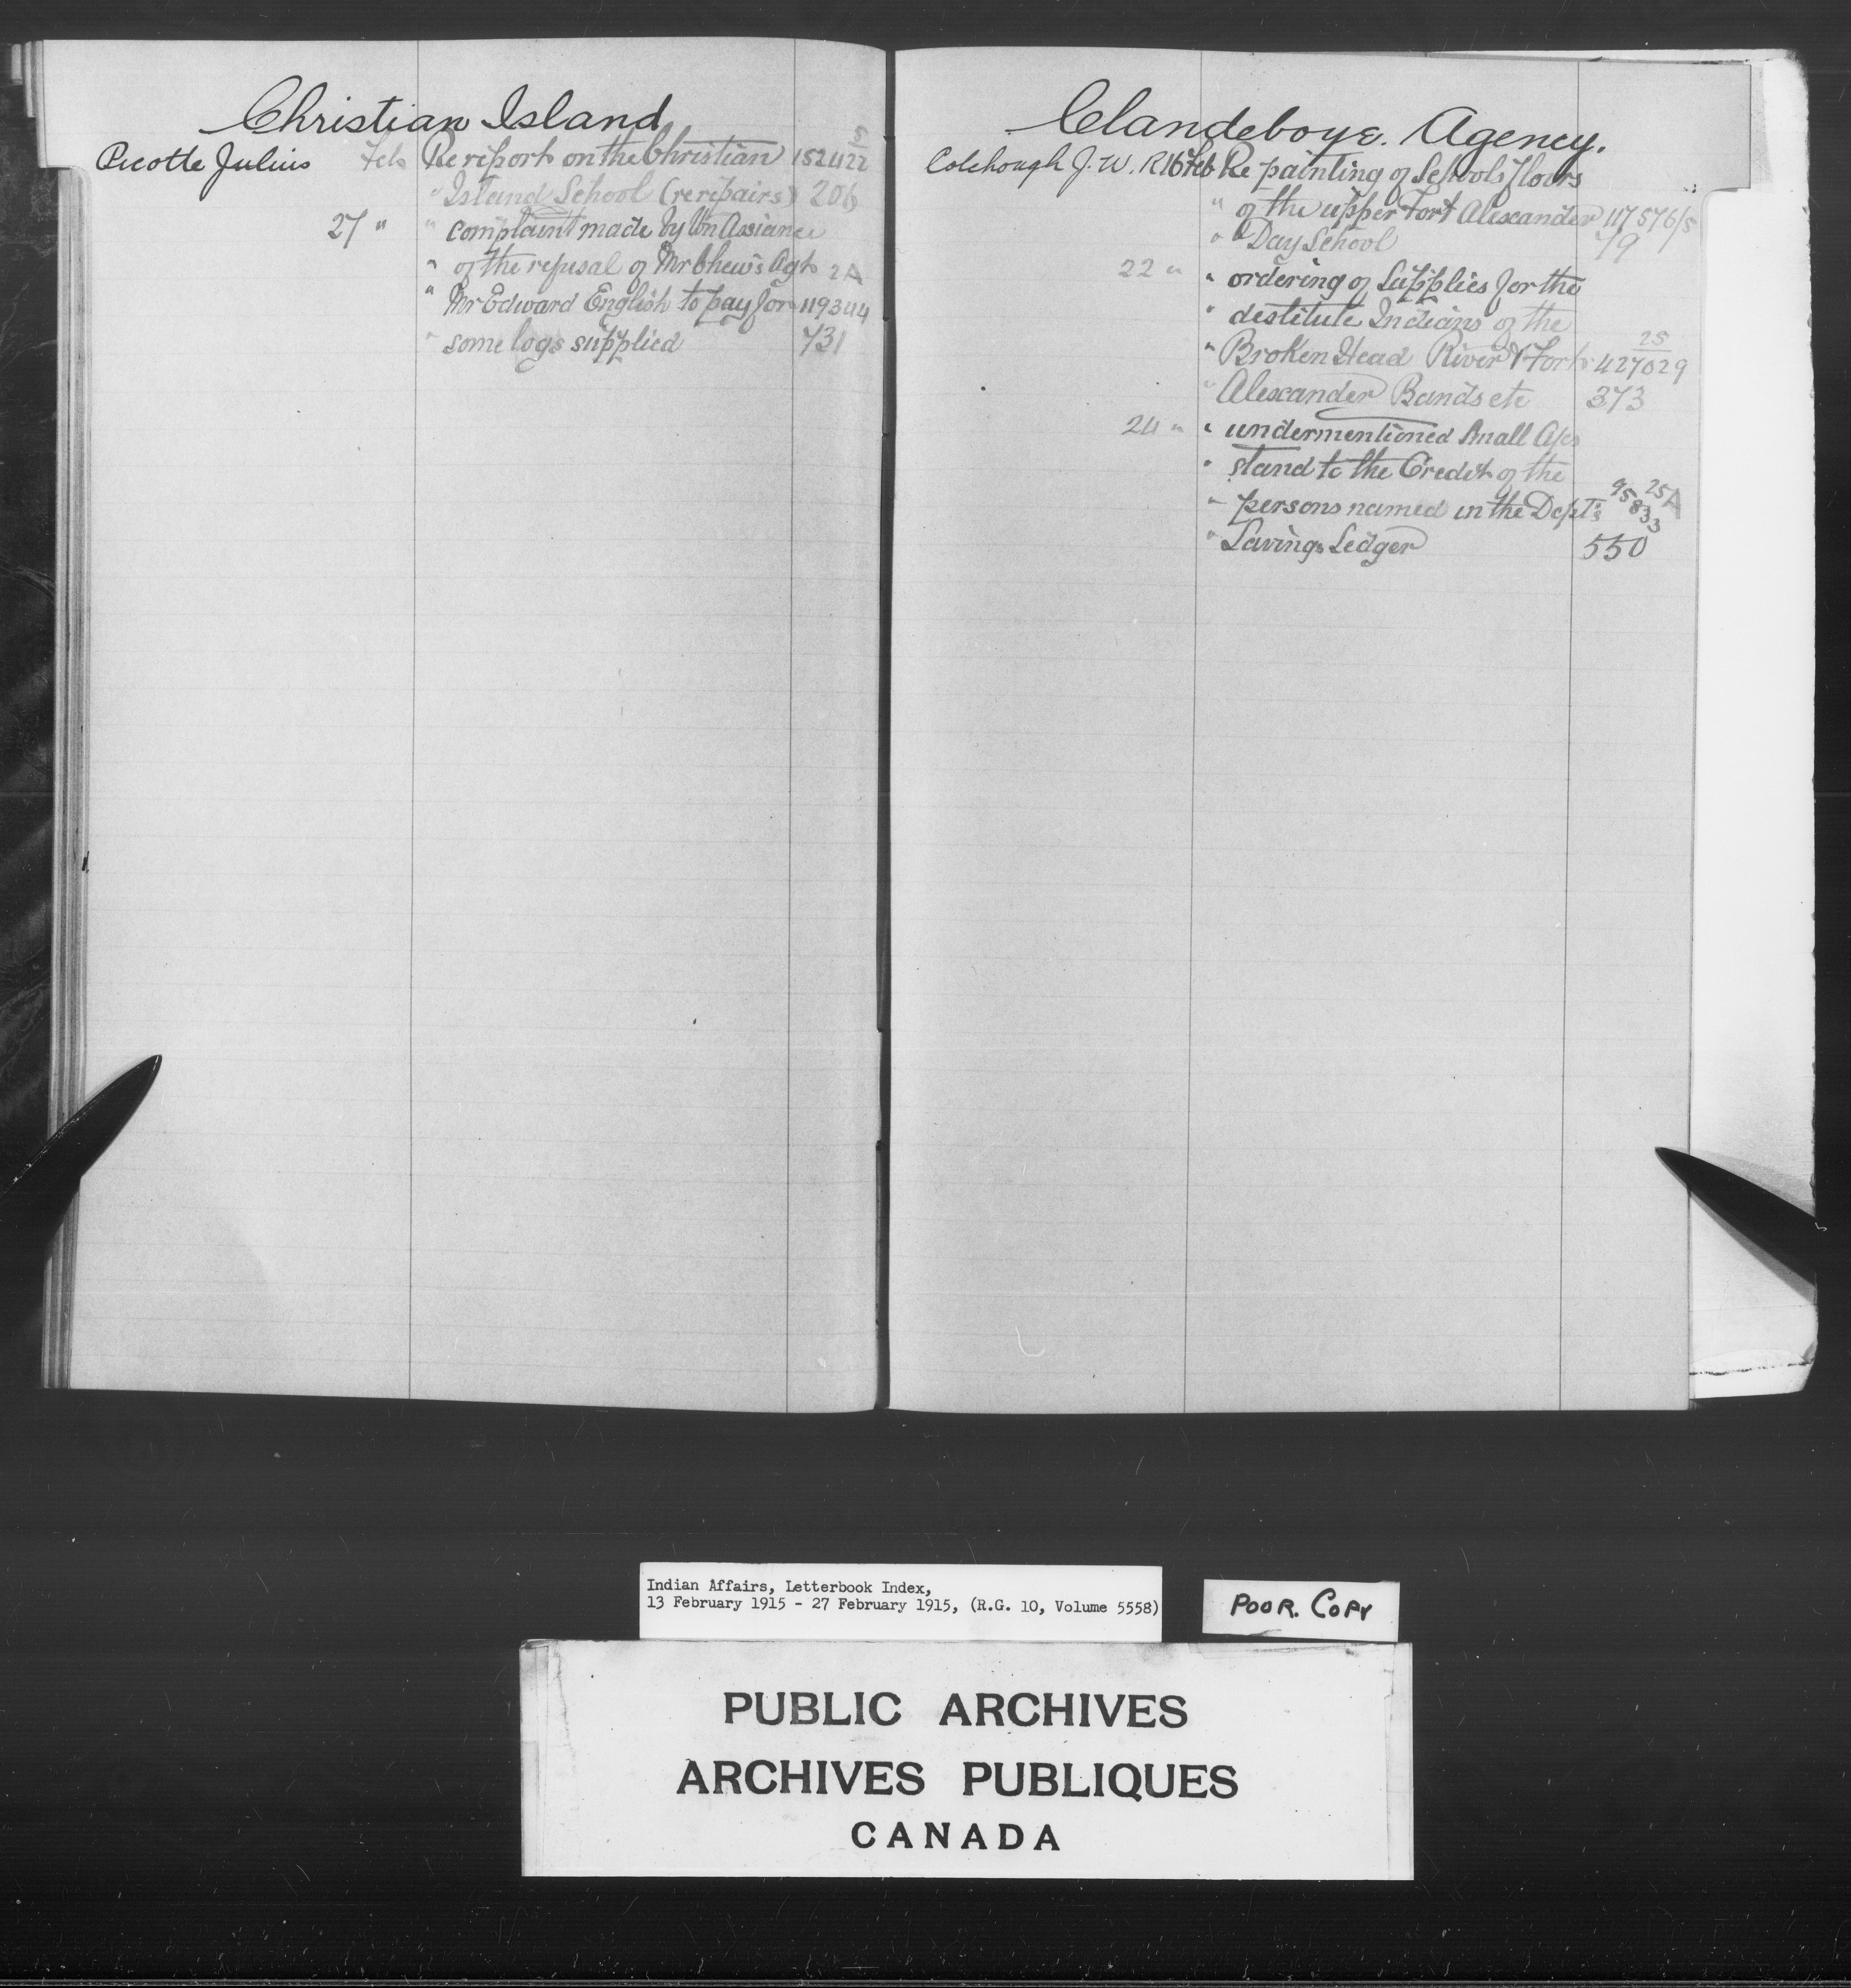 Christian Island
5
Picotte Julius Feb Re report on the Christian 152422
" Island School (re repairs) 206
27 " " complaint made by Wm Assiance
" of the refusal of Mr Chew's Agt 2A
" Mr Edward English to pay for 119344
" some logs supplied 731
Clandeboye. Agency.
Colchough J. W. R 16 Feb Re painting of Schools floors
" of the upper Fort Alexander 117576/5
" Day School 79
22 " " ordering of Supplies for the
" destitute Indians of the
25
" Broken Head River & Fort 427029
" Alexander Bands etc 373
24 " " undermentioned Small A/cs
" stand to the Credit of the
25A
" persons named in the Dept's 95833
" Savings Ledger 550
Indian Affairs, Letterbook Index,
13 February 1915 - 27 February 1915, (R.G. 10, Volume 5558)
POOR. COPY
PUBLIC ARCHIVES
ARCHIVES PUBLIQUES
CANADA